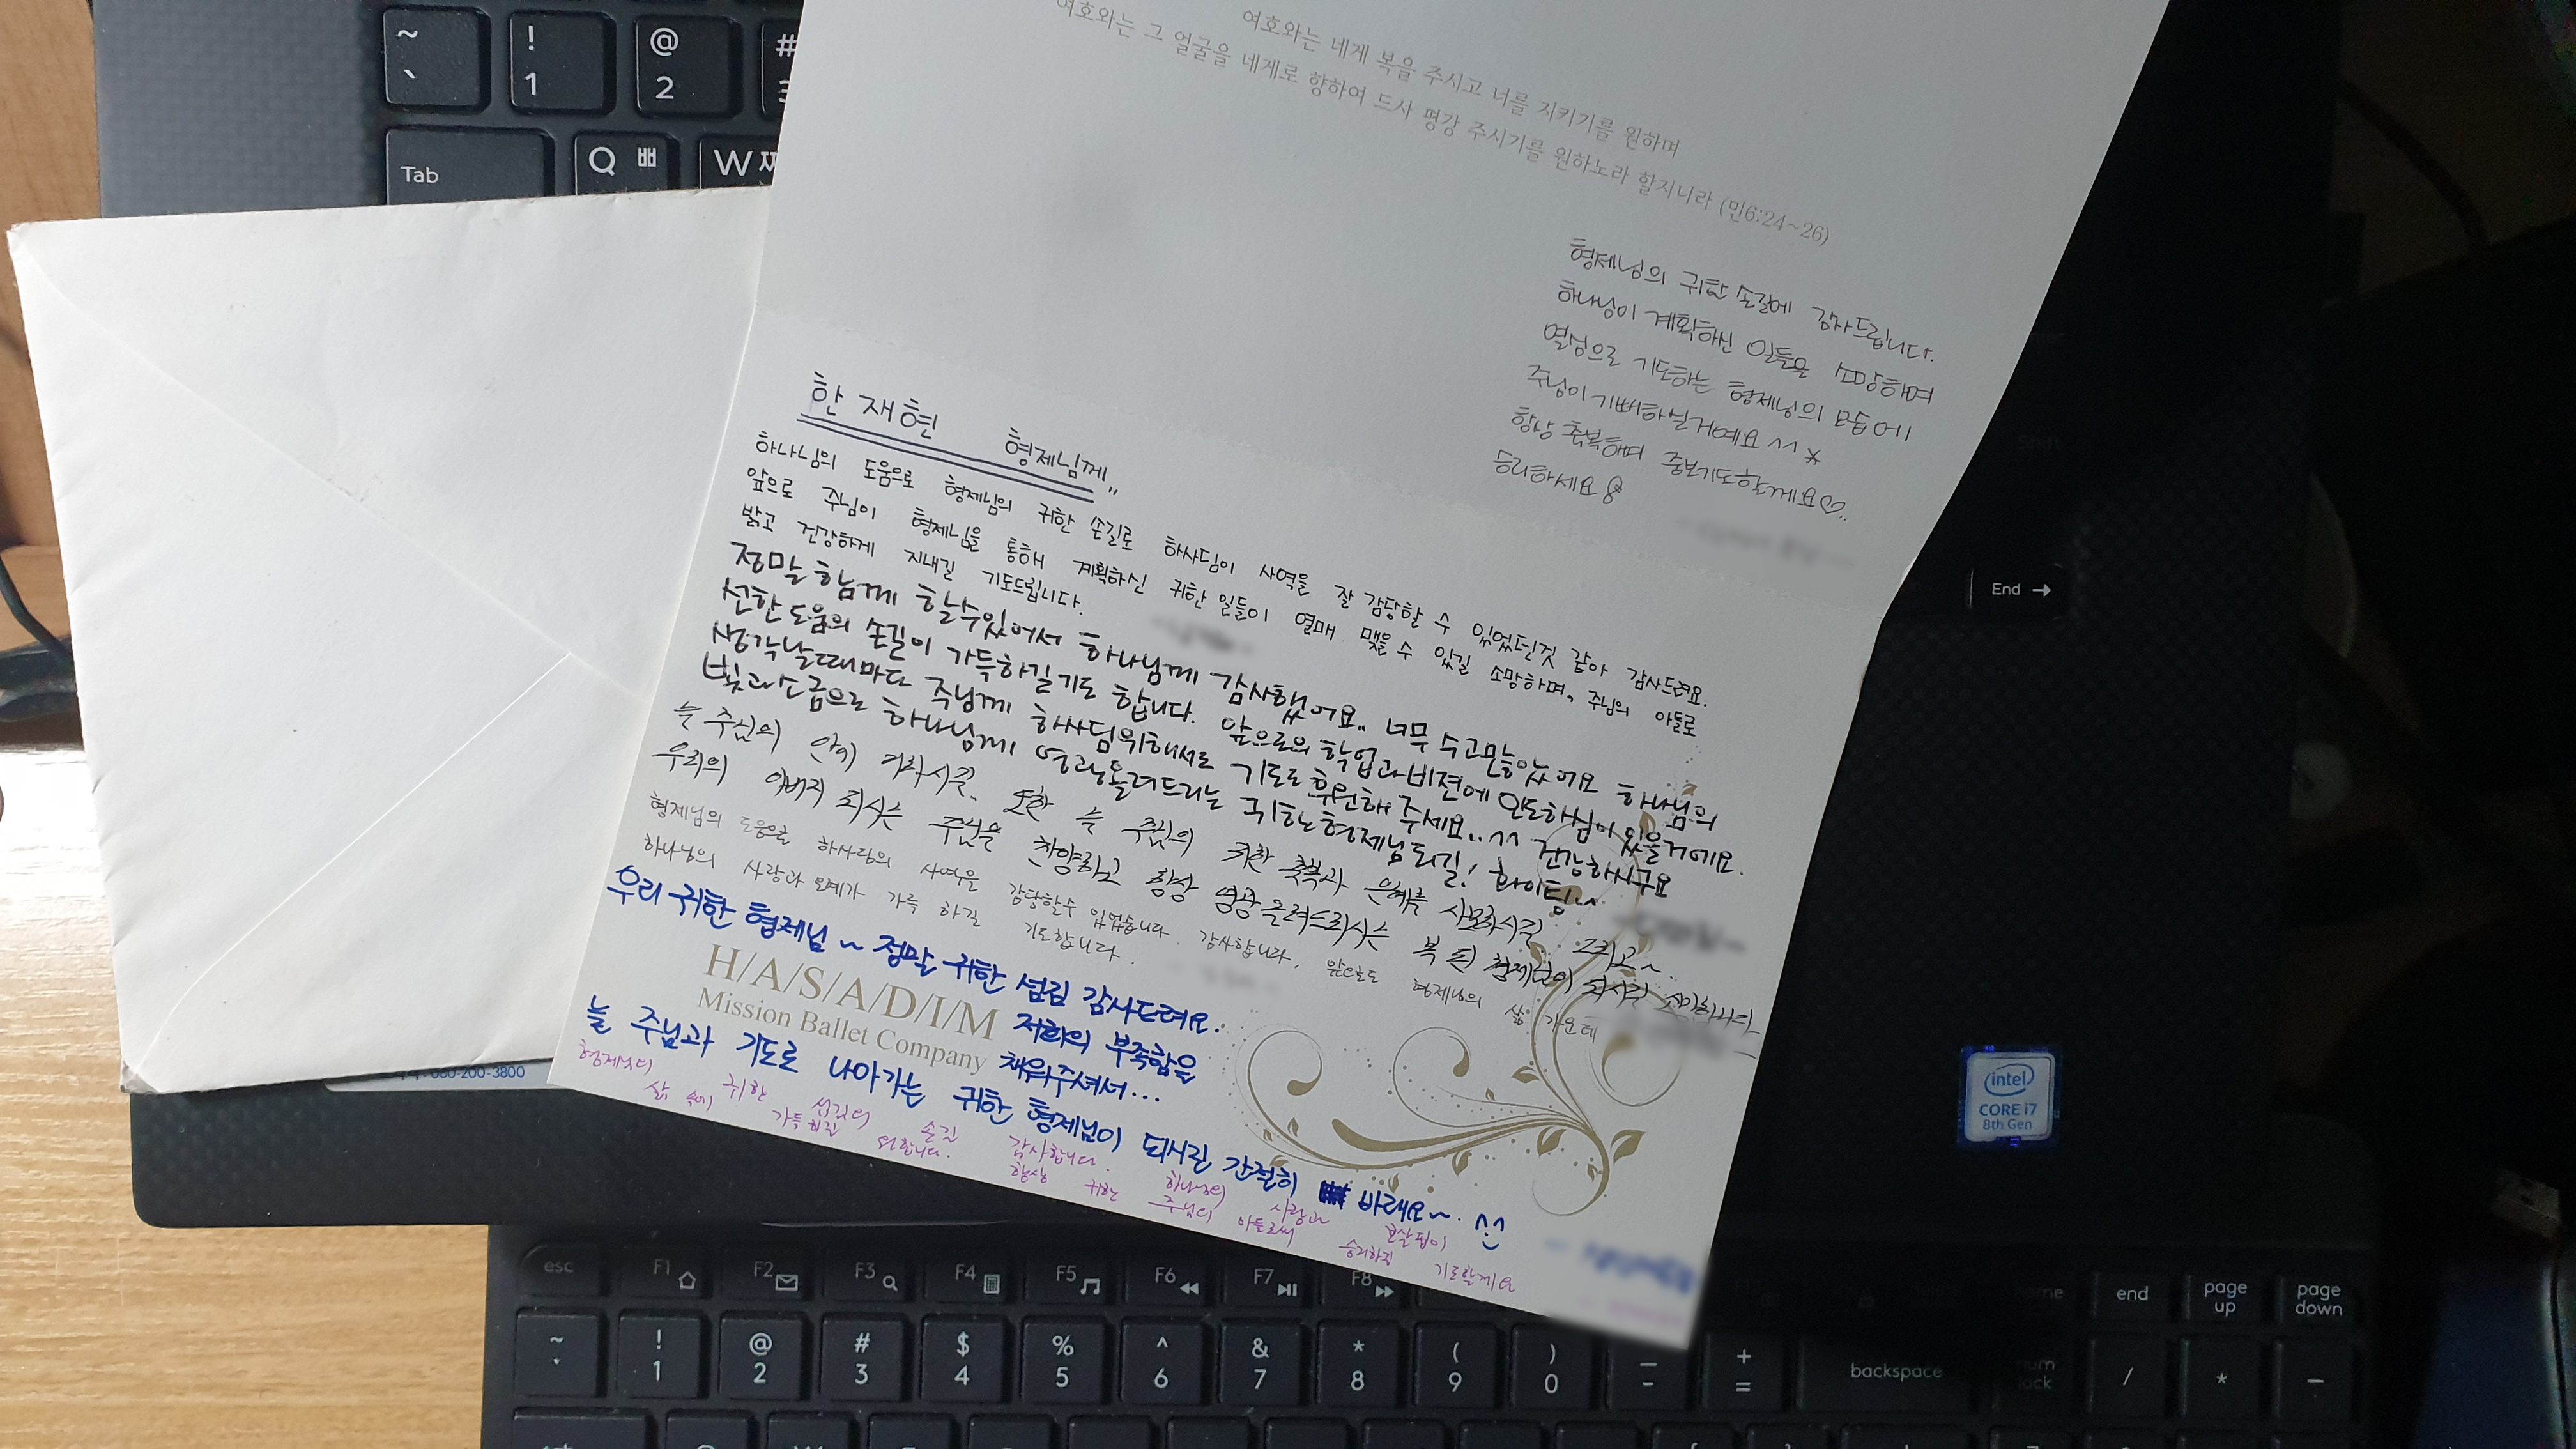 ~ `
! 1
@ 2
#
Tab
Q ㅃ
W
여호와는 네게 복을 주시고 너를 지키기를 원하며
여호와는 그 얼굴을 네게로 향하여 드사 평강 주시기를 원하노라 할지니라 (민6:24~26)
형제님의 귀한 손길에 감사드립니다.
하나님이 계획하신 일들을 소망하며
열심으로 기도하는 형제님의 모습에
주님이 기뻐하실거예요 ^^*
항상 축복하며 중보기도할께요♡..
승리하세요
한재현 형제님께..
하나님의 도움으로 형제님의 귀한 손길로 하사딤이 사역을 잘 감당할 수 있었던것 같아 감사드려요.
앞으로 주님이 형제님을 통해 계획하신 귀한 일들이 열매 맺을 수 있길 소망하며, 주님의 아들로
밝고 건강하게 지내길 기도드립니다.
정말 함께 할수있어서 하나님께 감사했어요.. 너무 수고많았어요 하나님의
선한 도움의 손길이 가득하길 기도 합니다. 앞으로의 학업과 비젼에 인도하심이 있을거에요.
생각날때마다 주님께 하사딤위해서도 기도로 후원해 주세요..^^ 건강하시구요
빛과소금으로 하나님께 영광올려드리는 귀한형제님되길! 화이팅~
늘 주님의 안에 거하시길. 또한 늘 주님의 귀한 축복과 은혜를 사모하시길. 그리고~.
우리의 아버지 되시는 주님을 찬양하고 항상 영광 올려드리시는 복 된 형제님이 되시길 소망합니다
형제님의 도움으로 하사딤의 사역을 감당할수 있었습니다. 감사합니다. 앞으로도 형제님의 삶 가운데
하나님의 사랑과 은혜가 가득 하길 기도합니다.
우리 귀한 형제님~ 정말 귀한 섬김 감사드려요.
H/A/S/A/D/I/M
Mission Ballet Company
저희의 부족함을
채워주셔서...
늘 주님과 기도로 나아가는 귀한 형제님이 되시길 간절히 바래요~. ^^
형제님의 귀한 섬김의 손길 감사합니다. 하나님의 사랑과 보살핌이
삶 속에 가득하길 원합니다. 항상 귀한 주님의 아들로써 승리하길 기도할게요
080-200-3800
End →
intel
CORE i7
8th Gen
esc F1 F2 F3 F4 F5 F6 F7 F8 home end page up page down
~ ` ! 1 @ 2 # 3 $ 4 % 5 ^ 6 & 7 * 8 ( 9 ) 0 — - + = backspace num lock / * −